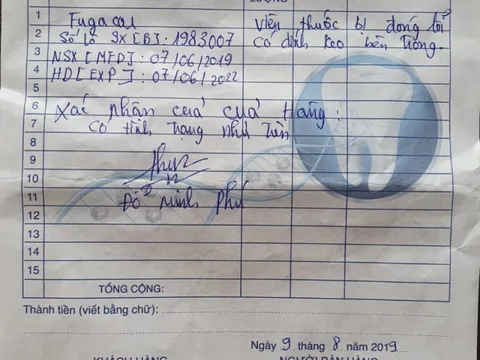 LƯỢNG
1 Fugacar viên thuốc bị đong lỗ
2 Số lô SX [BT]: 1983007 có dính keo bên trong.
3 NSX [MFD]: 07/06/2019
4 HD [EXP]: 07/06/2022
5
6 Xác nhận của cửa hàng:
7 Có tình trạng như trên
8
9
10
11 Đỗ minh Phú
12
13
14
15
TỔNG CỘNG:
Thành tiền (viết bằng chữ):
Ngày 9 tháng 8 năm 2019
KHÁCH HÀNG NGƯỜI BÁN HÀNG